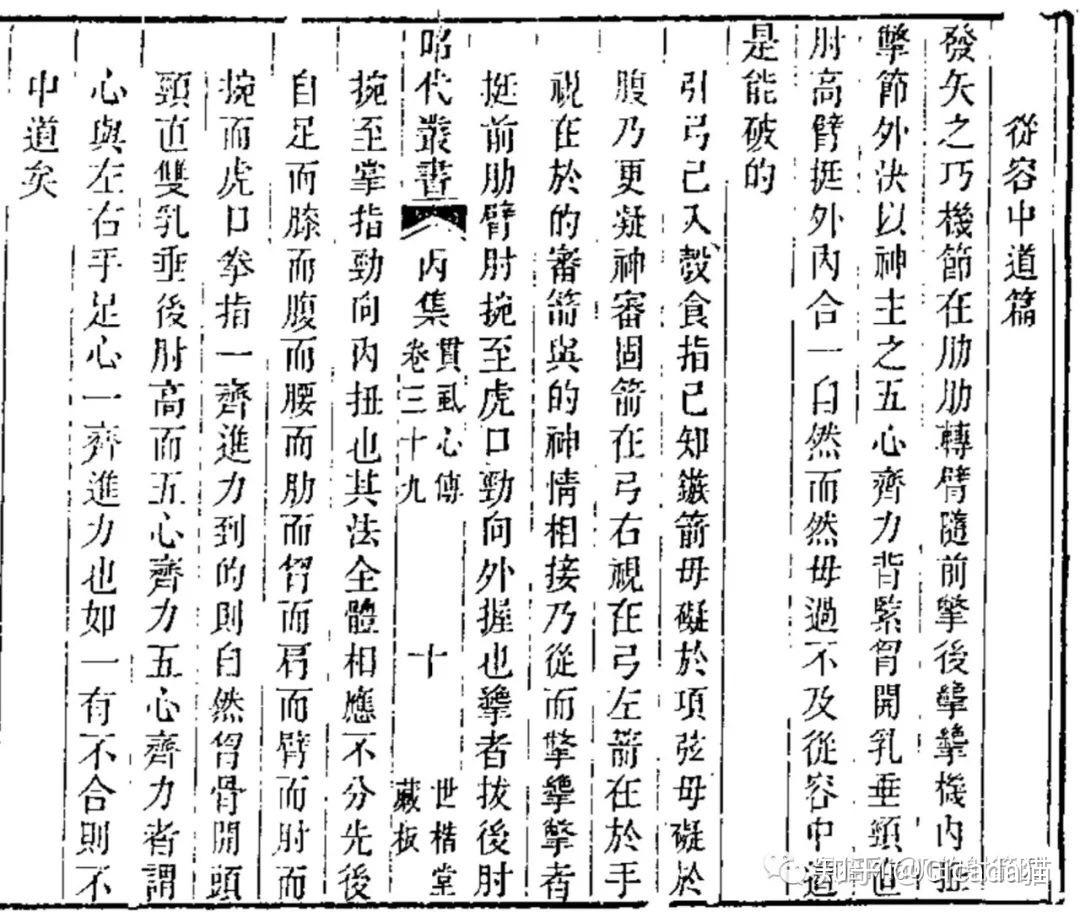 從容中道篇
發矢之巧機節在肋肋轉臂隨前撆後㩓㩓機內扭
撆節外決以神主之五心齊力背緊胷開乳垂頸直
肘高臂挺外內合一自然而然毋過不及從容中道
是能破的
引弓已入彀食指已知鏃箭毋礙於項弦毋礙於
腹乃更凝神審固箭在弓右視在弓左箭在於手
視在於的審箭與的神情相接乃從而撆㩓撆者
挺前肋臂肘捥至虎口勁向外握也㩓者拔後肘
昭代叢書 丙集 貫虱心傳 卷三十九 十 世楷堂 藏板
捥至掌指勁向內扭也其法全體相應不分先後
自足而膝而腹而腰而肋而胷而肩而臂而肘而
捥而虎口拳指一齊進力到的則自然胷骨開頭
頸直雙乳垂後肘高而五心齊力五心齊力者謂
心與左右手足心一齊進力也如一有不合則不
中道矣